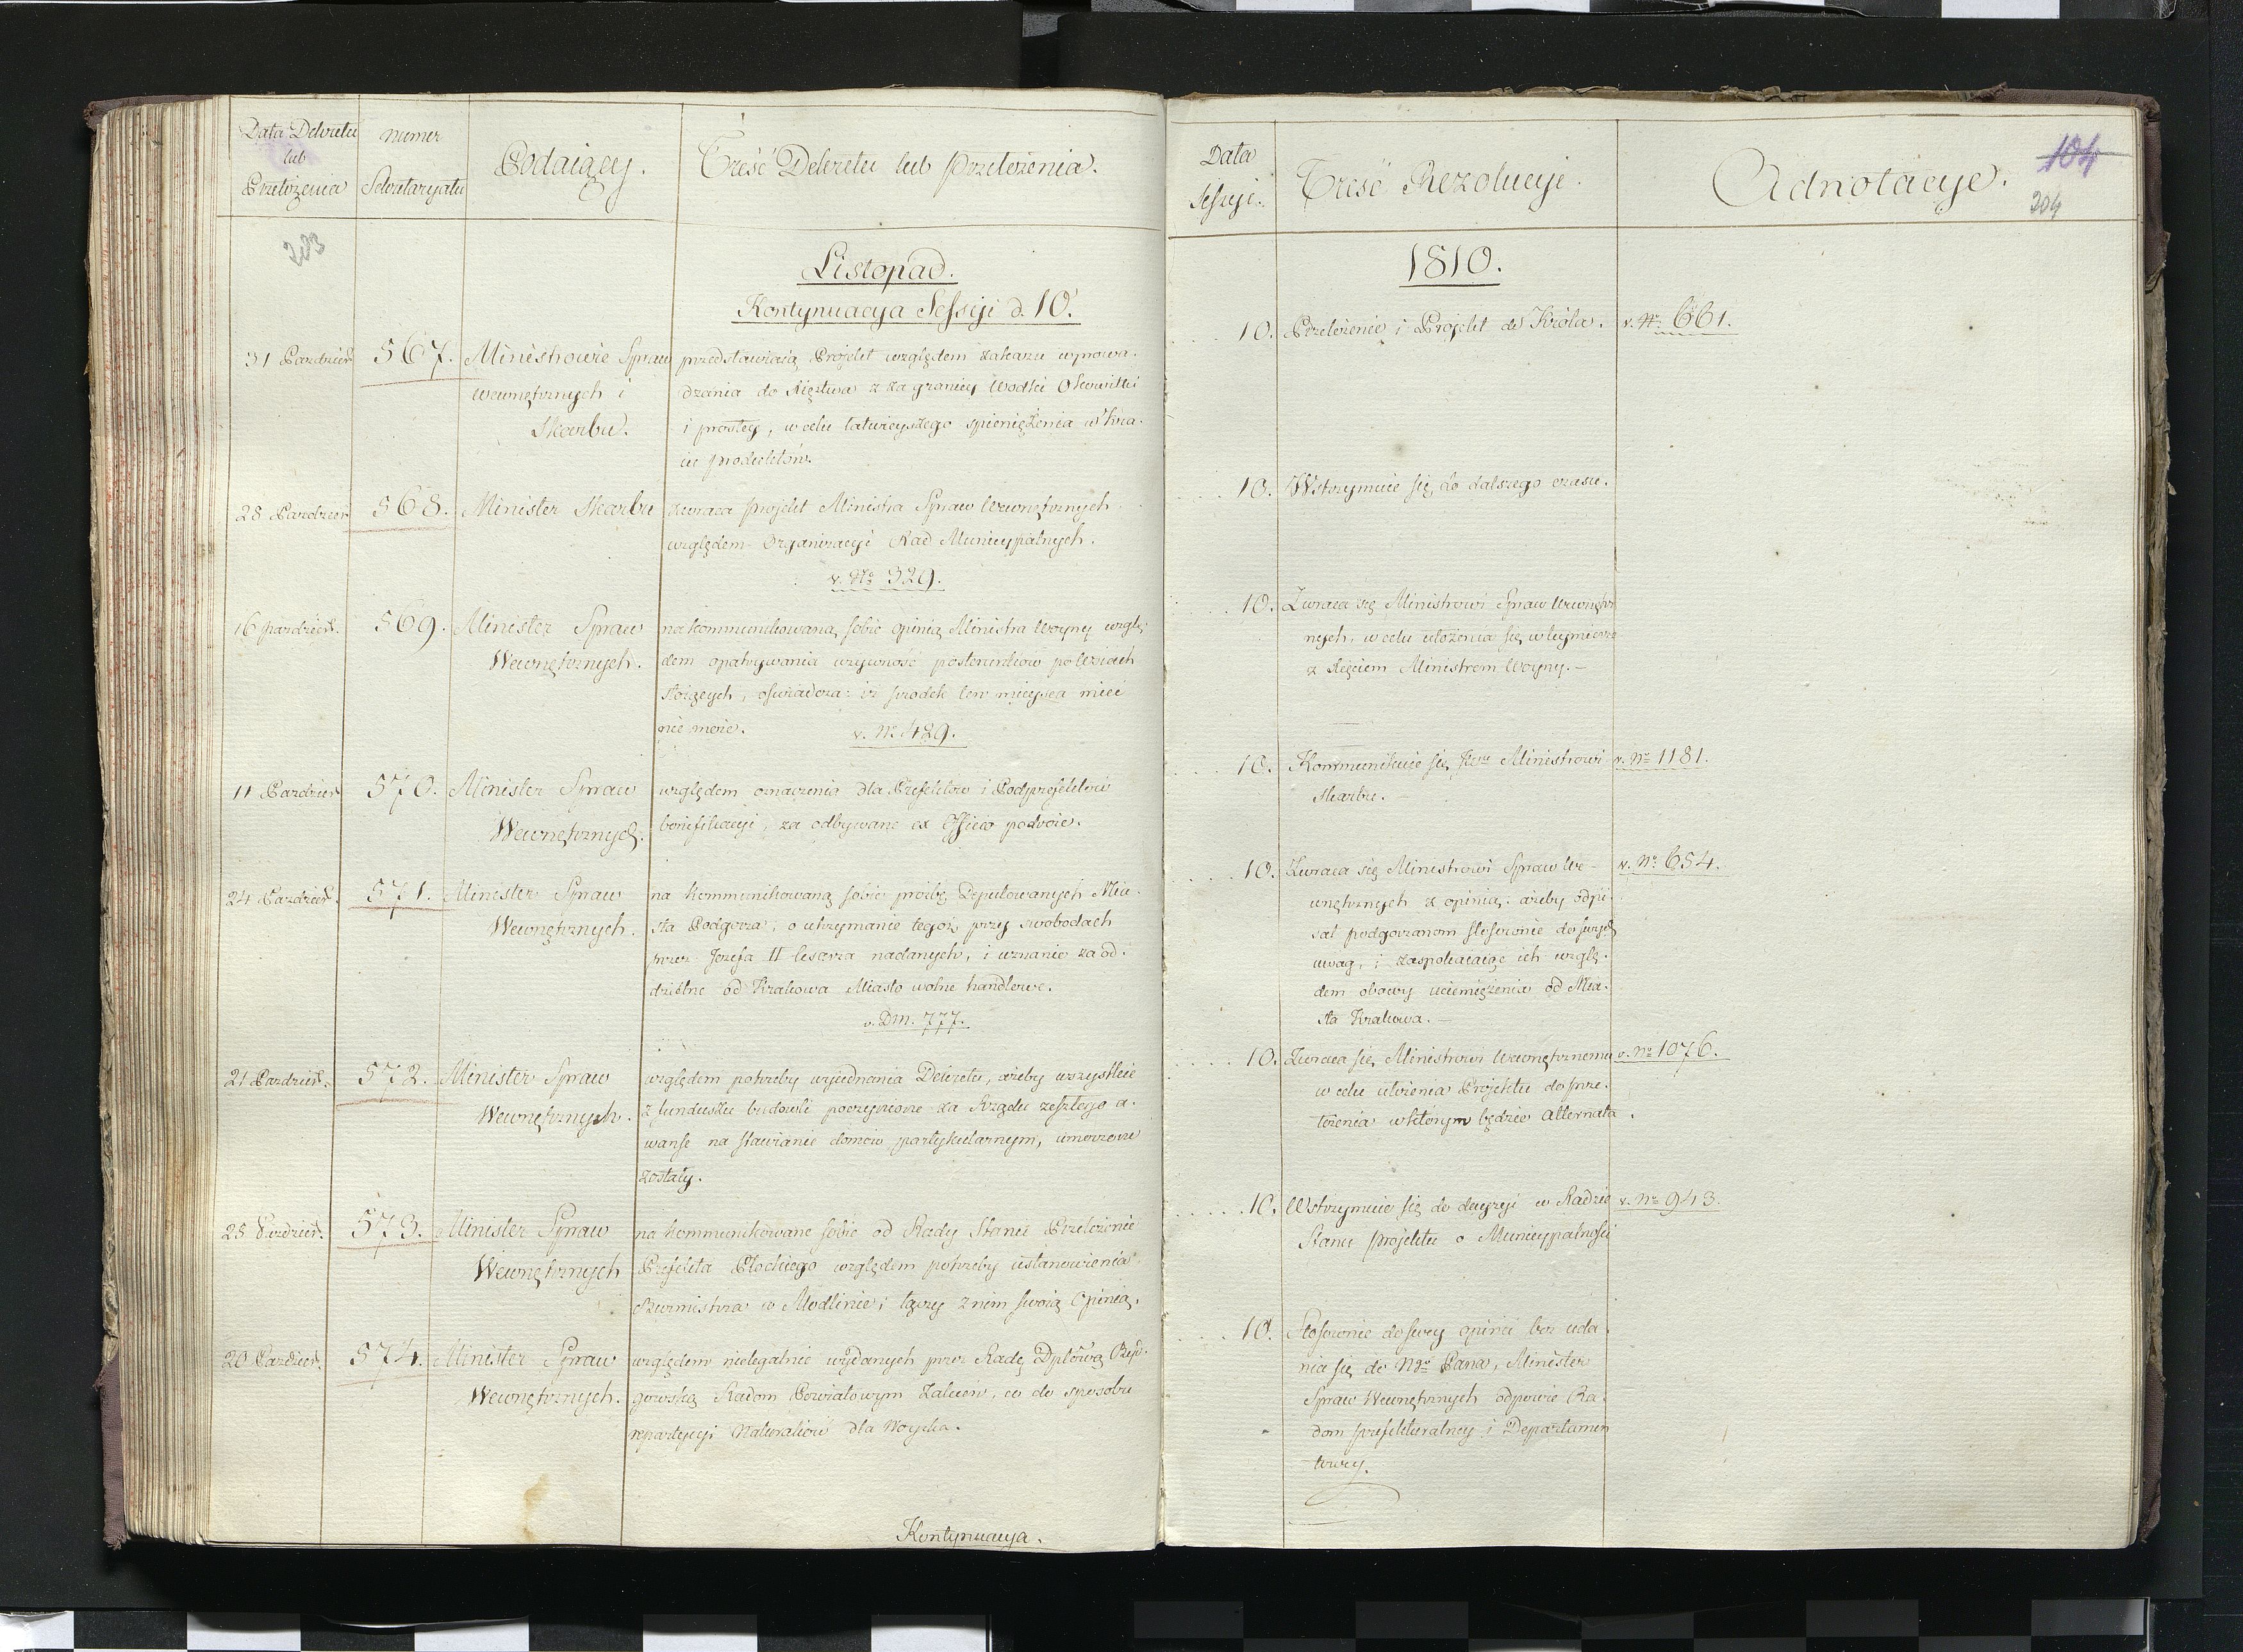 Data Dekretu
lub
Przełożenia
Numer
Sekretaryatu
Podaiący.
Treść Dekretu lub Przełożenia.
203
Listopad.
Kontynuacya Sessyi d. 10.
31 Paźdźier.
567.
Ministrowie Spraw
Wewnętrznych i
Skarbu.
przedstawiaią Projekt względem zakazu wprowa-
dzenia do Xięztwa z za granicy Wodki Okowitki
i prostey, w celu łatwieyszego spieniężenia w Kra-
iu produktów.
28 Paździer.
568.
Minister Skarbu
zwraca projekt Ministra Spraw Wewnętrznych
względem Organizacyi Rad Municypalnych.
v. No 329.
16 paździer.
569.
Minister Spraw
Wewnętrznych.
na kommunikowaną sobie opinią Ministra Woyny wzglę-
dem opatrywania w żywność posterunków po Wsiach
stoiących, oświadcza iż srodek ten mieysca mieć
nie może.
v. No 489.
11 Paździer.
570.
Minister Spraw
Wewnętrznych.
względem oznaczenia dla Prefektów i Podprefektów
bonifikacyi, za odbywane ex Officio podroże.
24 Paździer.
571.
Minister Spraw
Wewnętrznych.
na kommunikowaną sobie prożbę Deputowanych Mia-
sta Podgorza, o utrzymanie tegoż przy swobodach
przez Jozefa II Cesarza nadanych, i uznanie za od-
dzielne od Krakowa Miasto wolne handlowe.
v. Dm. 777.
21 Paździer.
572.
Minister Spraw
Wewnętrznych.
względem potrzeby wyiednania Dekretu, ażeby wszystkie
z funduszu budowli poczynione za Rządu zeszłego a-
wanse na stawianie domów partykularnym, umorzone
zostały.
25 Paździer.
573.
Minister Spraw
Wewnętrznych
na kommunikowane sobie od Rady Stanu Przełożenie
Prefekta Płockiego względem potrzeby ustanowienia
Burmistrza w Modlinie; łączy z nim swoią Opinią.
20 Paździer.
574.
Minister Spraw
Wewnętrznych.
względem nielegalnie wydanych przez Radę Dptową Byd-
gowską Radom Powiatowym Zaleceń, co do sposobu
repartycyi Naturaliów dla Woyska.
Kontynuacya.
Data
Sessyi.
Treść Rezolucyi.
Adnotacye.
104
204
1810.
10.
Przełożenie i Projekt do Króla.
v. No 661.
10.
Wstrzymuie się do dalszego czasu.
10.
Zwraca się Ministrowi Spraw Wewnętrz-
nych, w celu ułożenia się w tey mierze
z Xięciem Ministrem Woyny.
10.
Kommunikuie się Ministrowi
Skarbu.
v. No 1181.
10.
Zwraca się Ministrowi Spraw We-
wnętrznych z opinią, ażeby odpi-
sał podgorzanom stosownie do swych
uwag, i zaspokaiaiąc ich wzglę-
dem obawy uciemiężenia od Mia-
sta Krakowa.
v. No 654.
10.
Zwraca się Ministrowi Wewnętrznemu
w celu ułożenia Projektu do prze-
łożenia w którym będzie alternata.
v. No 1076.
10.
Wstrzymuie się do decyzyi w Radzie
Stanu projektu o Municypalności
v. No 943.
10.
Stosownie do swey opinii bez uda-
nia się do Ngo Pana, Minister
Spraw Wewnętrznych odpowie Ra-
dom prefekturalney i Departamen-
towey.